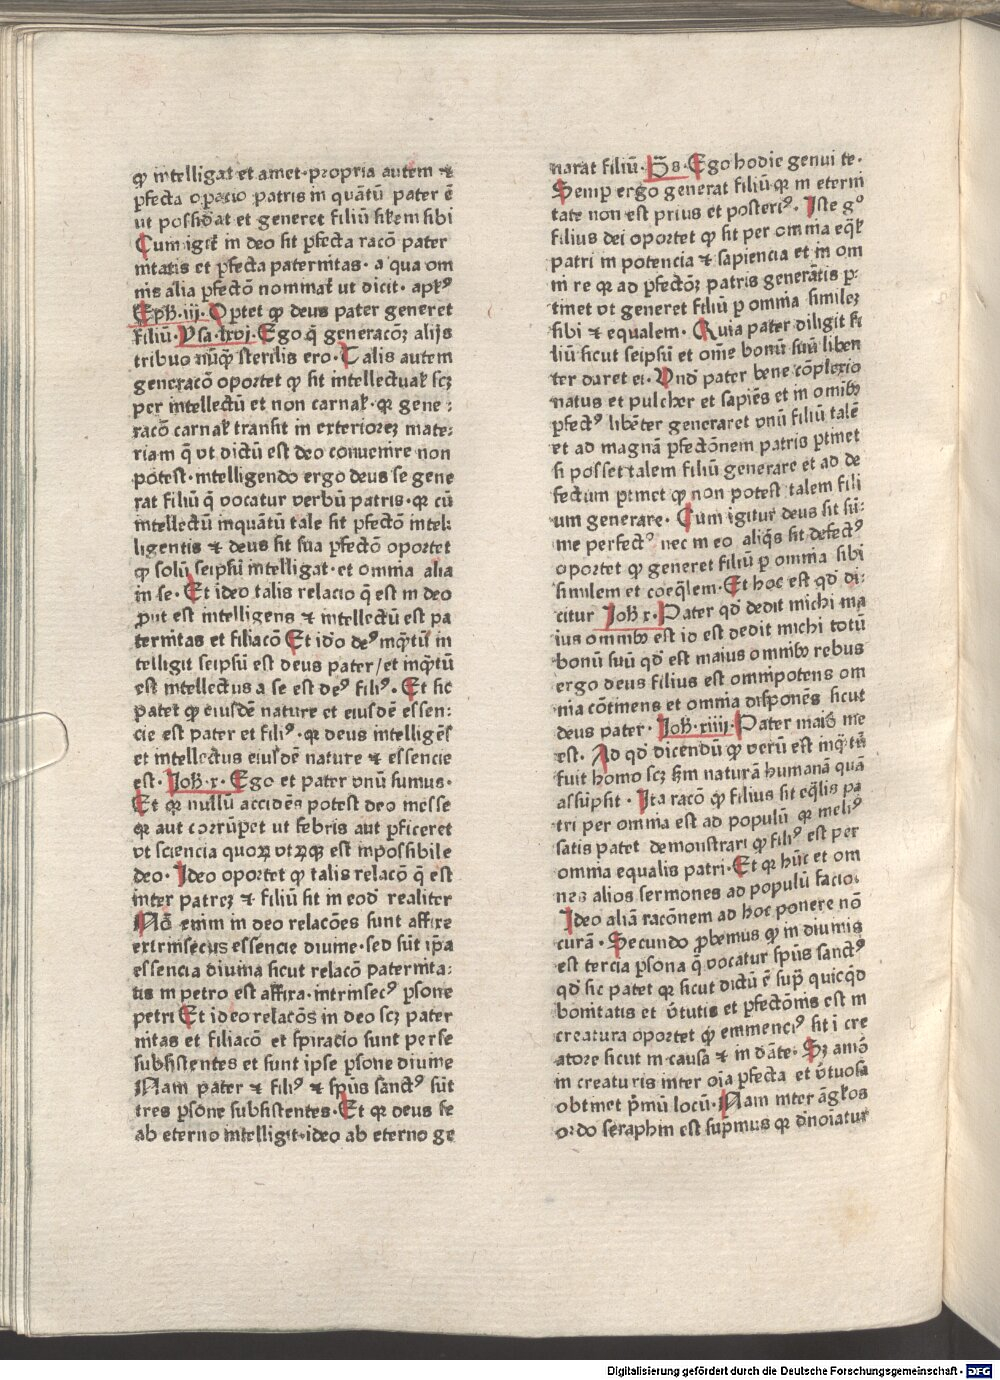 ꝙ intelligat et amet·propria autem ⁊
ꝓfecta oꝑacio patris in quātū pater ē
ut possideat et generet filiū sil̄em sibi
Cum igit̄ in deo sit ꝑfecta racō pater
nitatis et ꝑfecta paternitas· a qua om
nis alia ꝑfectō nominat̄ ut dicit· apl̄ꝰ
Eph̄·iij· Oꝑtet ꝙ deus pater generet
filiū· Ysa·lxvj· Ego q̄ generacōꝫ alijs
tribuo nūꝙ̄ sterilis ero· Talis autem
generacō oportet ꝙ sit intellectual̄ scꝫ
per intellectū et non carnal̄·qꝛ gene⸗
racō carnal̄ transit in exterioreꝫ mate⸗
riam q̄ vt dictū est deo conuenire non
potest·intelligendo ergo deus se gene
rat filiū q̄ vocatur verbū patris·qꝛ cū
intellectū inquātū tale sit ꝑfectō intel⸗
ligentis ⁊ deus sit sua ꝑfectō oportet
ꝙ solū seipsū intelligat·et omnia alia
in se· Et ideo talis relacio q̄ est in deo
ꝓut est intelligens ⁊ intellectū est pa
ternitas et filiacō Et idō deꝰ inq̄tū in
telligit seipsū est deus pater/et inq̄tū
est intellectus a se est deꝰ filiꝰ· Et sic
patet ꝙ eiusdē nature et eiusdē essen⸗
cie est pater et filiꝰ·qꝛ deus intelligēs
et intellectus eiusdē nature ⁊ essencie
est· Joh̄·x· Ego et pater vnū sumus·
Et qꝛ nullū accidēs potest deo inesse
qꝛ aut corrūpet ut febris aut ꝑficeret
vt sciencia quoꝝ vtrūqꝫ est inpossibile
deo· Ideo oportet ꝙ talis relacō q̄ est
inter patreꝫ ⁊ filiū sit in eod̄ realiter
Nō enim in deo relacōes sunt affixe
extrinsecus essencie diuine·sed sūt ip̄a
essencia diuina sicut relacō paternita⸗
tis in petro est affixa·intrinsecꝰ ꝑsone
petri Et ideo relacōs in deo scꝫ pater
nitas et filiacō et spiracio sunt per se
subsistentes et sunt ipse ꝑsone diuine
Nam pater ⁊ filiꝰ ⁊ sp̄us sanctꝰ sūt
tres ꝑsone subsistentes· Et qꝛ deus se
ab eterno intelligit·ideo ab eterno ge
narat filiū· P̄s· Ego hodie genui te·
Semꝑ ergo generat filiū qꝛ in eterni
tate non est prius et posteriꝰ· Iste gͦ
filius dei oportet ꝙ sit per omnia eq̄l̄
patri in potencia ⁊ sapiencia et in om
ni re qꝛ ad ꝑfectōꝫ patris generātis ꝑ⸗
tinet vt generet filiū ꝑ omnia simileꝫ
sibi ⁊ equalem· Quia pater diligit fi
liū sicut seipsū et om̄e bonū suū liben
ter daret ei· Vnd̄ pater bene cōplexio
natus et pulcher et sapiēs et in omībꝫ
ꝑfectꝰ libēter generaret vnū filiū talē
et ad magnā ꝑfectōnem patris ꝑtinet
si posset talem filiū generare et ad de
fectum ꝑtinet ꝙ non potest talem fili
um generare· Cum igitur deus sit sū⸗
me perfectꝰ nec in eo aliq̄s sit defectꝰ
oportet ꝙ generet filiū ꝑ omnia sibi
similem et coeq̄lem· Et hoc est qd̄ di⸗
citur Joh̄ x· Pater qd̄ dedit michi ma
ius omnibꝫ est id est dedit michi totū
bonū suū qd̄ est maius omnibꝫ rebus
ergo deus filius est omnipotens om
nia cōtinens et omnia disponēs sicut
deus pater· Joh̄·xiiij· Pater maiꝰ me
est· Ad qd̄ dicendū ꝙ verū est inq̄tū
fuit homo scꝫ s̄m naturā humanā quā
assūpsit · Ita racō ꝙ filius sit eq̄lis pa
tri per omnia est ad populū qꝛ meliꝰ
satis patet demonstrari ꝙ filiꝰ est per
omnia equalis patri· Et qꝛ hūc et om
nes alios sermones ad populū facio·
Ideo aliā racōnem ad hoc ponere nō
curā· Secundo ꝓbemus ꝙ in diuinis
est tercia ꝑsona q̄ vocatur sp̄us sanctꝰ
qd̄ sic patet qꝛ sicut dictū ē supͣ quicq̄d
bonitatis et v̄tutis et ꝑfectōnis est in
creatura oportet ꝙ eminenciꝰ sit ī cre
atore sicut in causa ⁊ in dāte· Sꝫ amō
in creaturis inter oīa ꝑfecta et v̄tuosa
obtinet p̄mū locū· Nam inter āgl̄os
ordo seraphin est sup̄mus qꝛ d̄noiatur
Digitalisierung gefördert durch die Deutsche Forschungsgemeinschaft - DFG